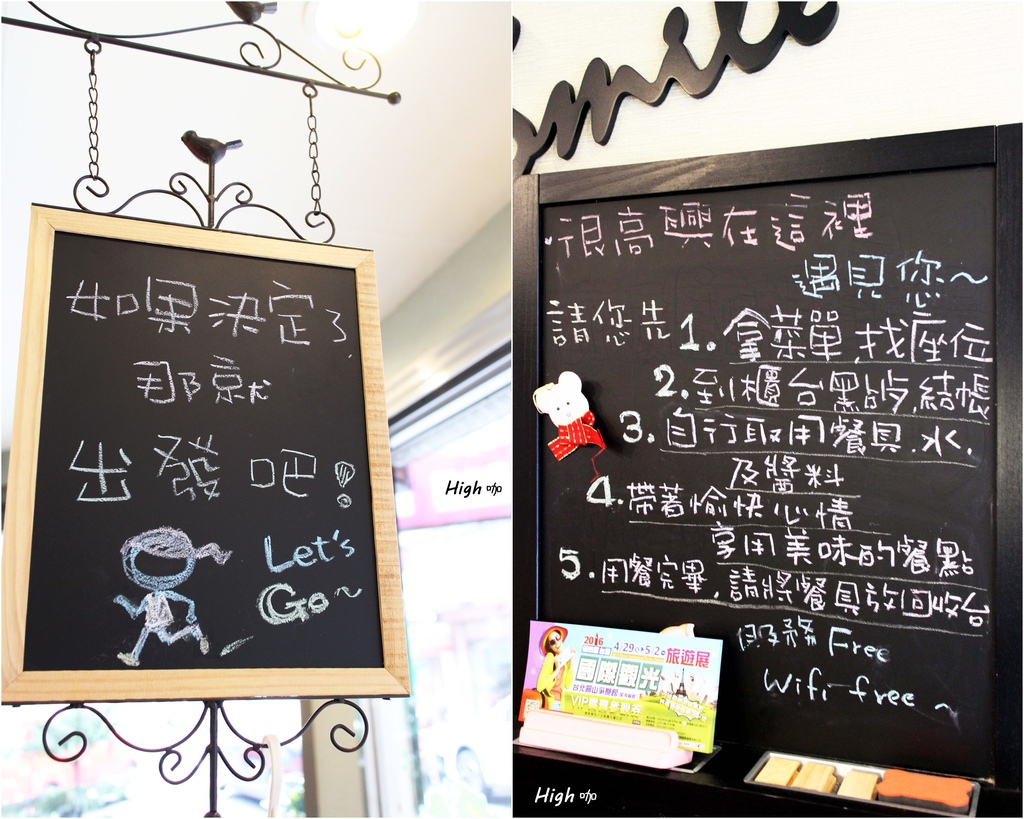 如果決定了
那就
出發吧!
Let's
Go~
High 咖
Smile
很高興在這裡
遇見您~
請您先 1. 拿菜單,找座位
2. 到櫃台點餐,結帳
3. 自行取用餐具.水.
及醬料
4. 帶著愉快心情
享用美味的餐點
5. 用餐完畢,請將餐具放回收台
服務 Free
Wifi-free~
2016
4/29 5/2
旅遊展
國際觀光
台北圓山爭艷館
High 咖